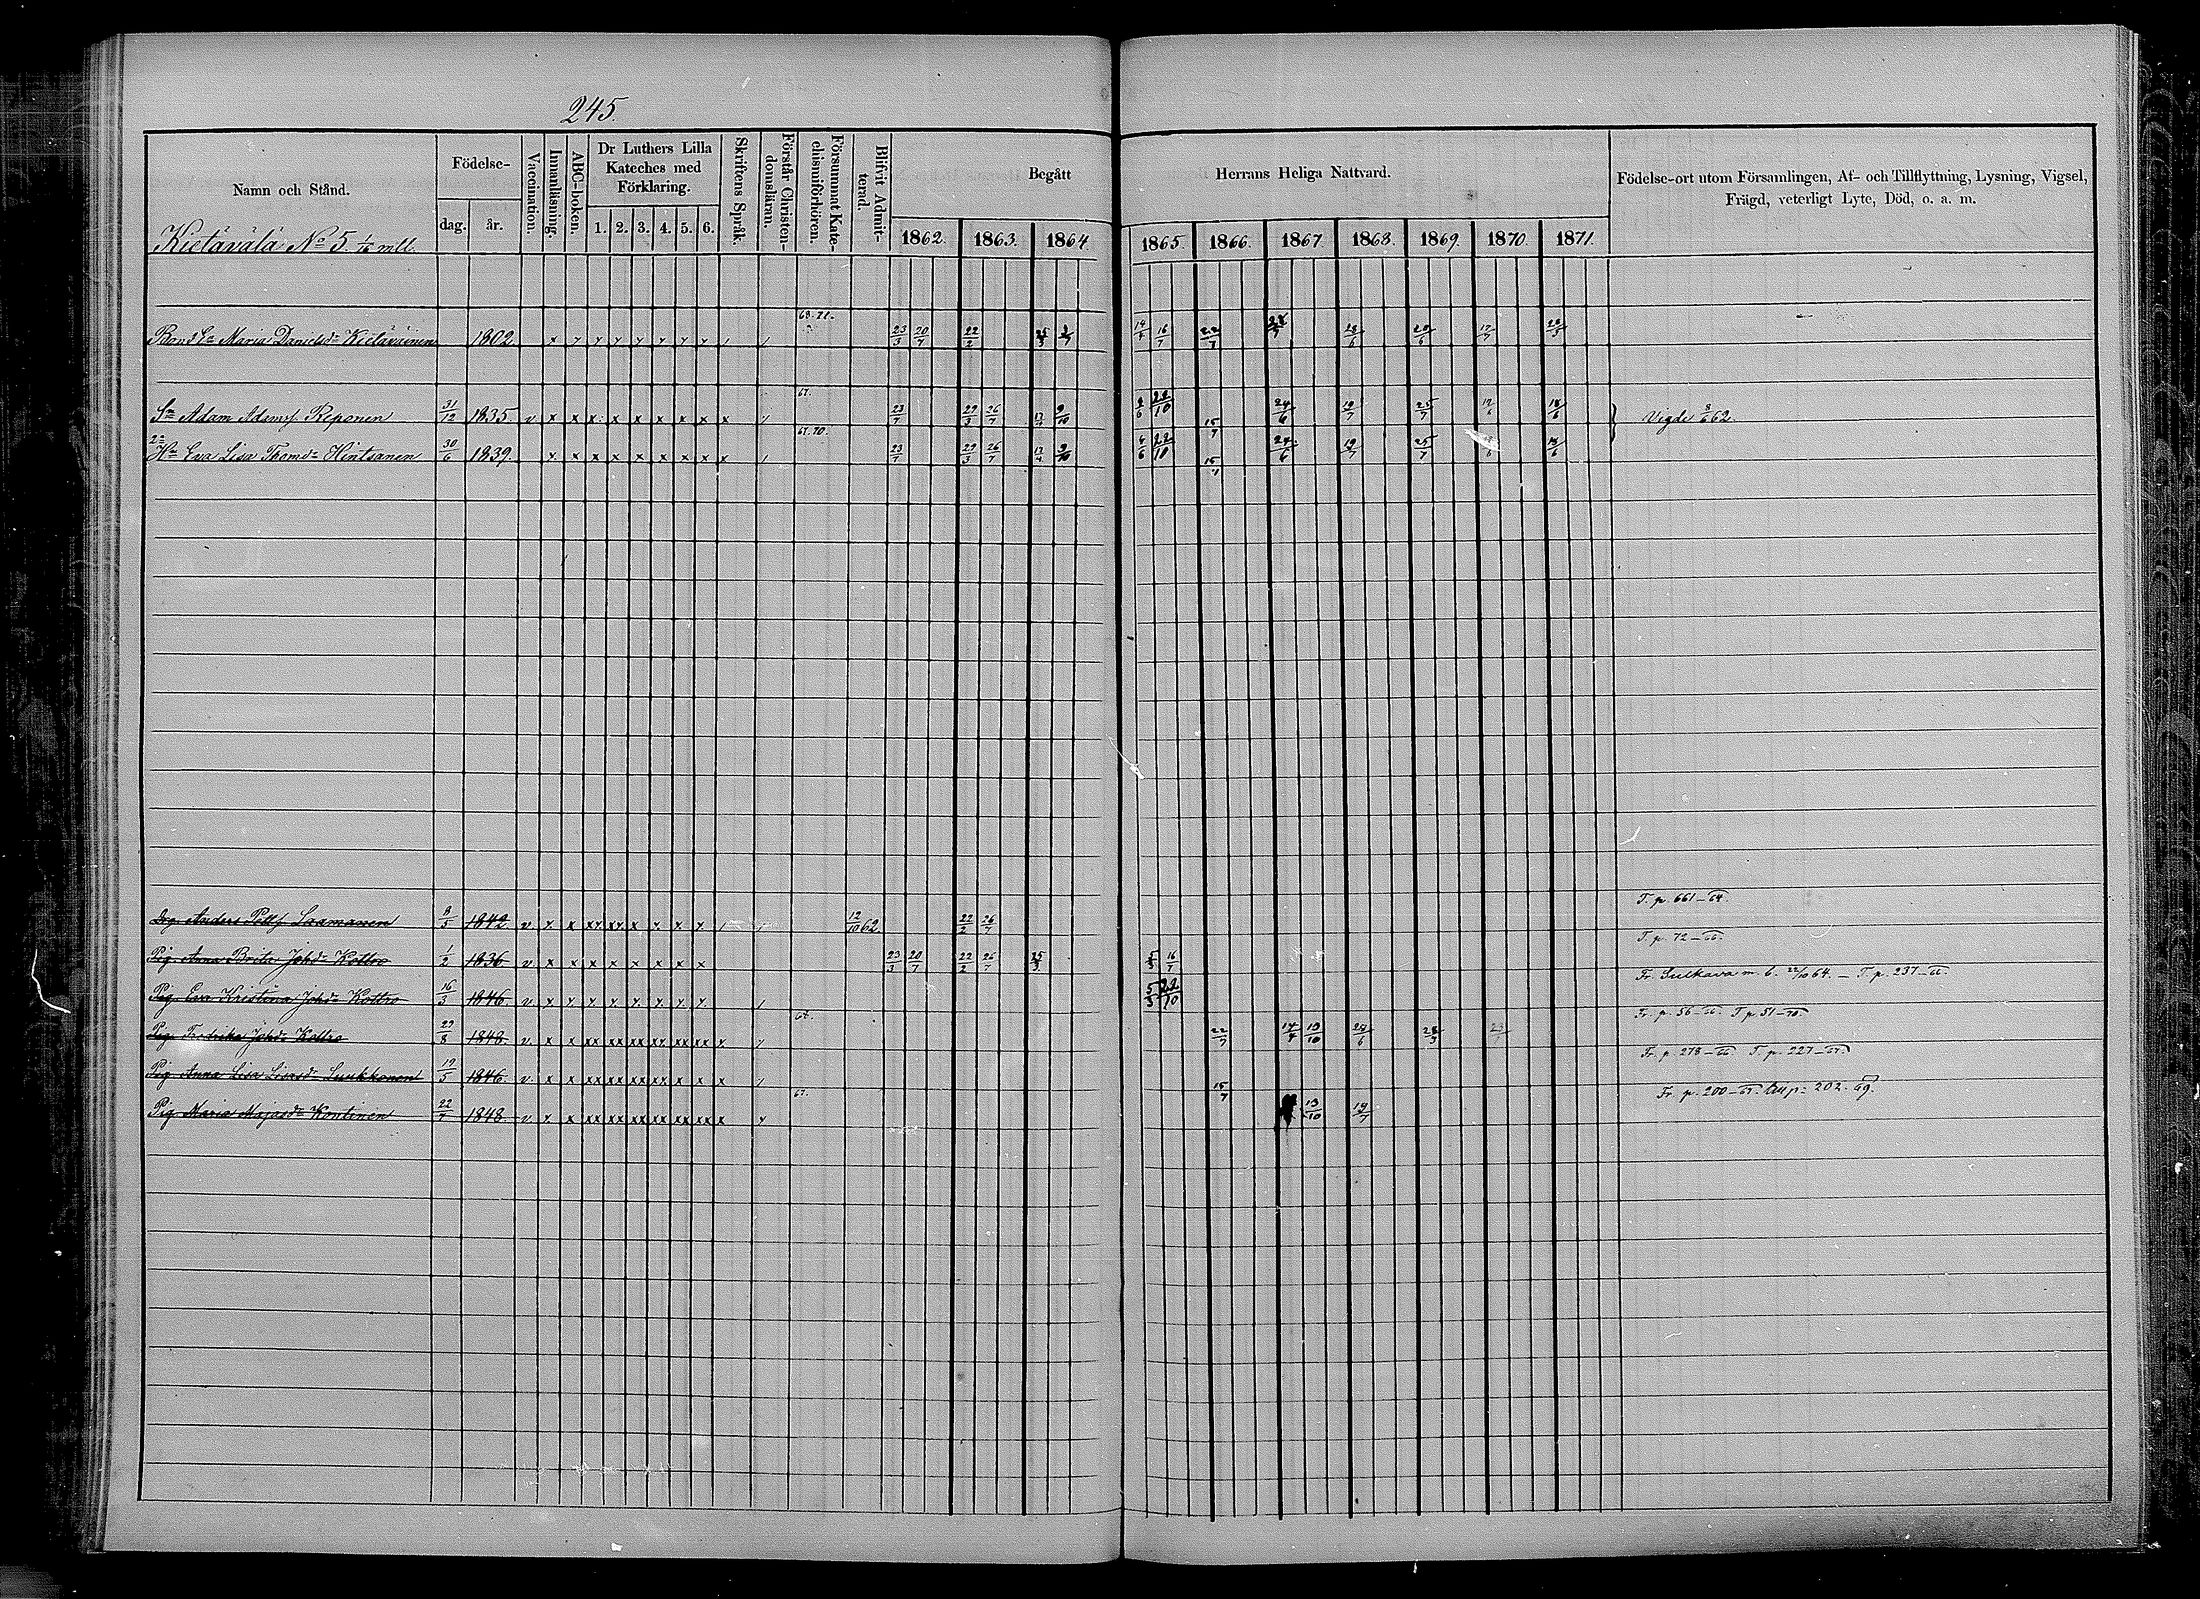 245.
Namn och Stånd.
Födelse-
dag.
år.
Vaccination.
Innanläsning.
ABC-boken.
Dr Luthers Lilla
Kateches med
Förklaring.
1. 2. 3. 4. 5. 6.
Skriftens Språk.
Förstår Christen-
domsläran.
Försummat Kate-
chismiförhören.
Blifvit Admit-
terad.
Begått
Herrans Heliga Nattvard.
1862. 1863. 1864.
1865. 1866. 1867. 1868. 1869. 1870. 1871.
Födelse-ort utom Församlingen, Af- och Tillflyttning, Lysning, Vigsel,
Frägd, veterligt Lyte, Död, o. a. m.
Kietävälä No 5. 1/6 mtl.
Maria Danielsdr Kietäväinen 1802
Sn Adam Adamsf. Reponen 31/12 1835. v x x x x x x x x x 67. 23/7 29/3 26/7 9/10 22/10 15/7 24/6 19/7 25/7 12/6 18/6 Vigde 62.
Hn Eva Lisa Thomdr Hintsanen 30/6 1839. x x x x x x x x x 67.70. 23/7 29/3 26/7 9/10 22/10 15/7 24/6 19/7 25/7 18/6
Drg. Anders Pettf Laamanen 1842. v 12/10 62. 22/2 26/7 T. p. 661-64.
Pig. Anna Brita Johdr Kottro 1/2 1836 v x x x x x x x x 23/3 20/7 22/2 26/7 25/3 5/3 16/7 T. p. 72-66.
Pig. Eva Kristina Johdr Kottro 16/3 1846. v 5/3 22/10 Fr. Sulkava m. b. 22/10 64. - T. p. 237-66.
Pig. Fredrika Johdr Kottro 29/8 1848 v. x x xx xx xx xx xx xx 67. 22/7 13/10 24/6 28/3 Fr. p. 56-66. T. p. 51-70.
Pig. Anna Lisa Lisasdr Luukkonen 19/5 1846. v. x x xx xx xx xx x x x 15/7 Fr. p. 278-66. T. p. 227-67.
Pig. Maria Majasdr Kontinen 22/7 1848 v x x xx xx xx xx xx xx x 67. 13/10 19/7 Fr. p. 200-67. 202. 69.